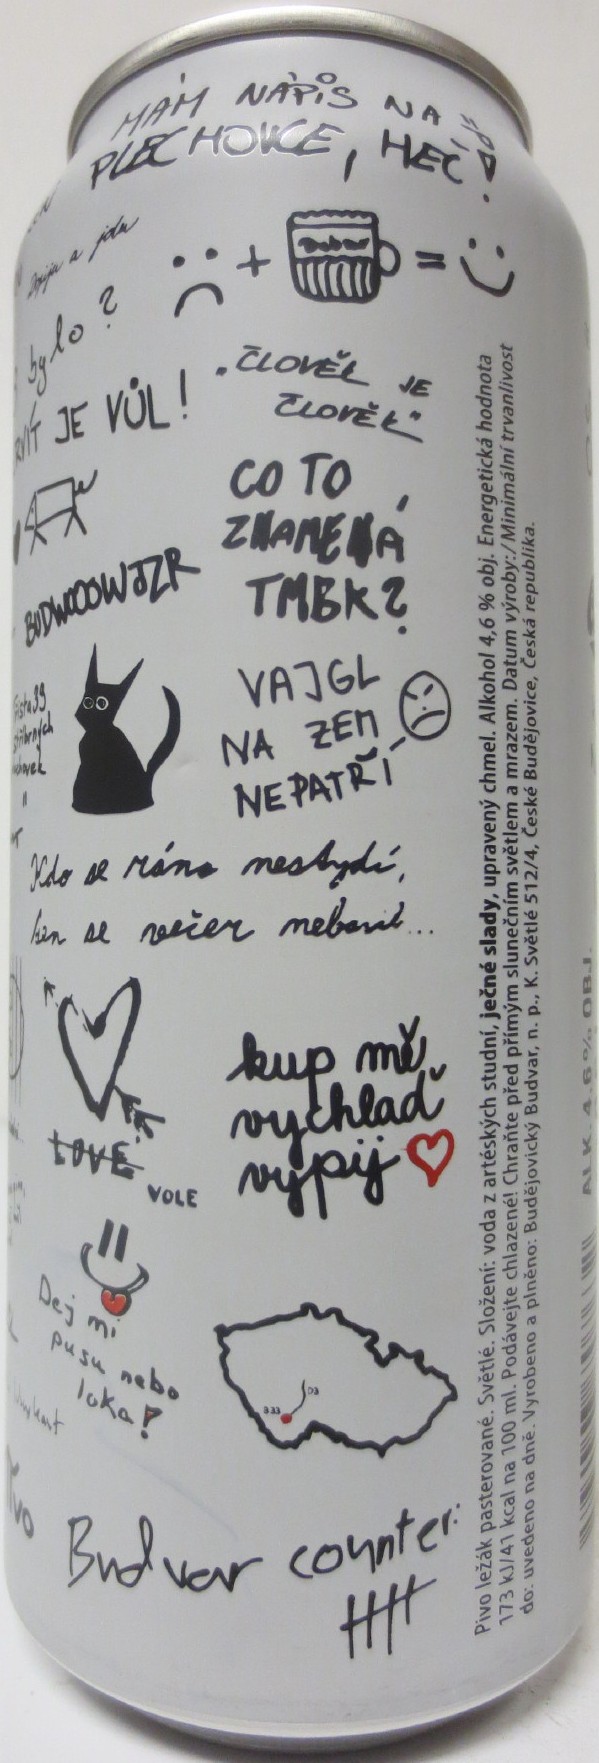 MÁM NÁPIS NA
PLECHOVCE, HEČ!
Dopiju a jdu
bylo?
JE VŮL!
+ Budvar =
"ČLOVĚK JE
ČLOVĚK"
CO TO
ZNAMENÁ
TMBK?
BUDWOOOWJZR
VAJGL
NA ZEM
NEPATŘÍ
Kdo se ráno nestydí,
ten se večer nebavil...
LOVE
VOLE
kup mě,
vychlaď
vypij
Dej mi
pusu nebo
loka!
Budvar counter:
Pivo ležák pasterované. Světlé. Složení: voda z artéských studní, ječné slady, upravený chmel. Alkohol 4,6 % obj. Energetická hodnota
173 kJ/41 kcal na 100 ml. Podávejte chlazené! Chraňte před přímým slunečním světlem a mrazem. Datum výroby:/Minimální trvanlivost
do: uvedeno na dně. Vyrobeno a plněno: Budějovický Budvar, n. p., K. Světlé 512/4, České Budějovice, Česká republika.
ALK. 4,6 % OBJ.